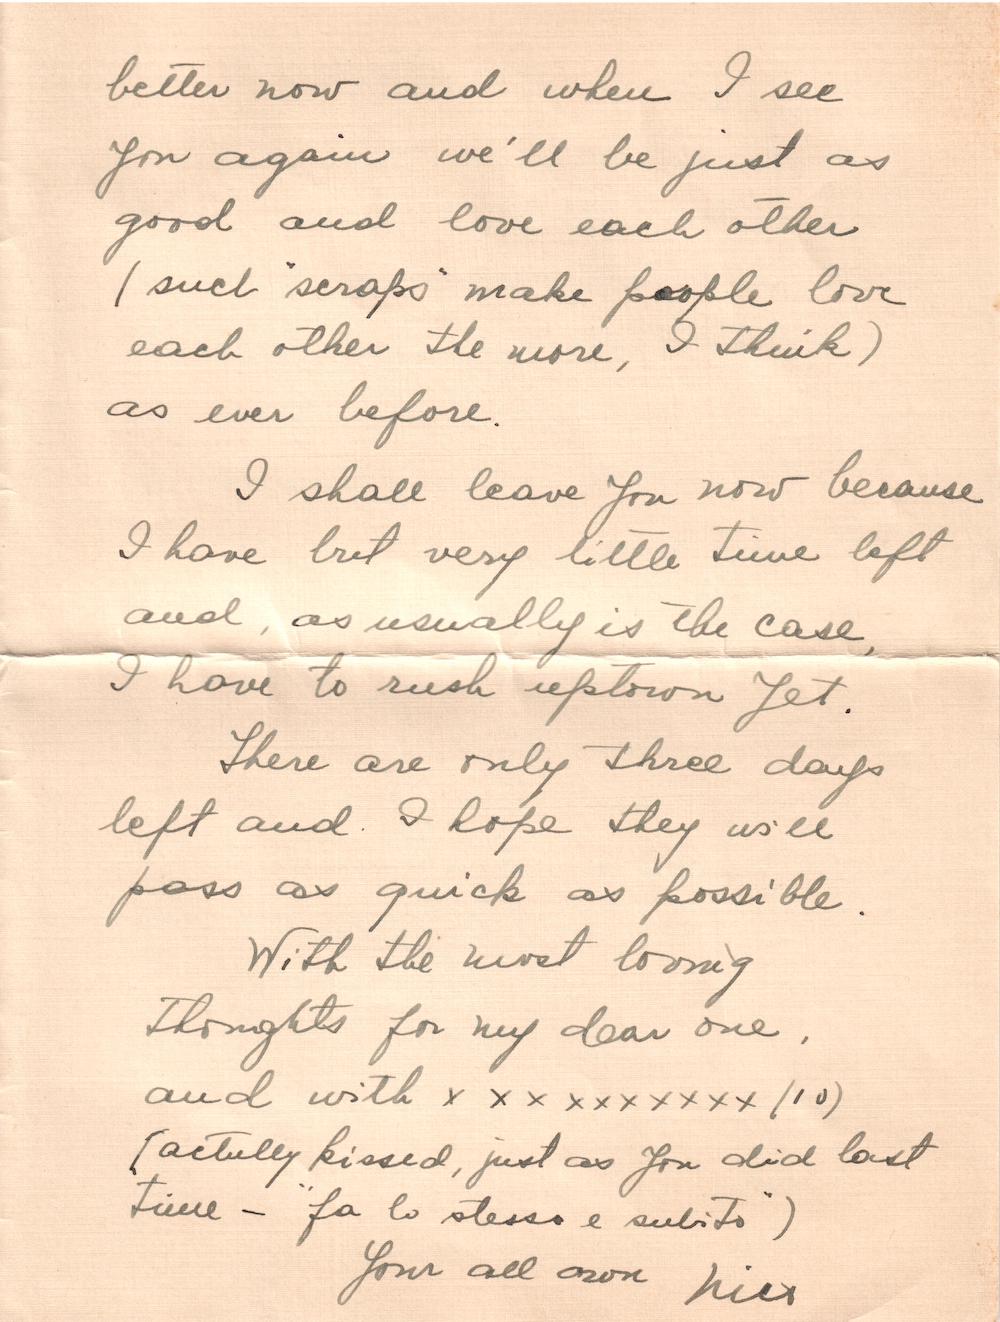 better now and when I see
you again we'll be just as
good and love each other
(such "scraps" make people love
each other the more, I think)
as ever before.
I shall leave you now because
I have but very little time left
and, as usually is the case,
I have to rush uptown yet.
There are only three days
left and I hope they will
pass as quick as possible.
With the most loving
thoughts for my dear one,
and with x x x x x x x x x x x (10)
(actully kissed, just as you did last
time – "fa lo stesso e subito")
Your all own Nico